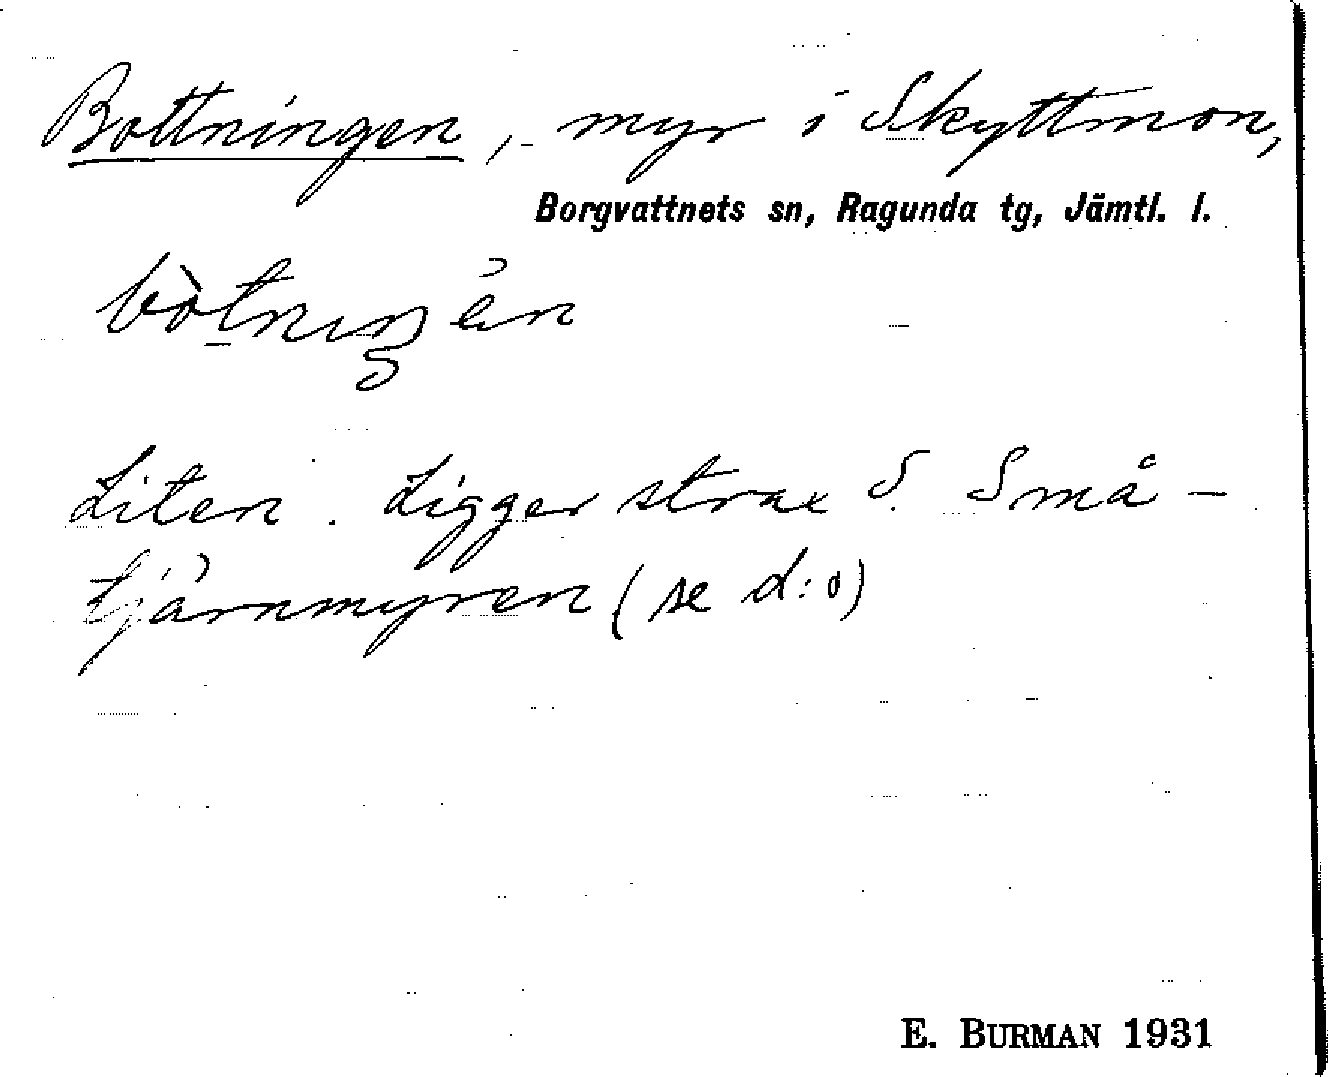 Bottningen, myr i Skyttmon,
Borgvattnets sn, Ragunda tg, Jämtl. l.
Liten. Ligger strax S. Små-
tjärnmyren (se d:o)
E. BURMAN 1931